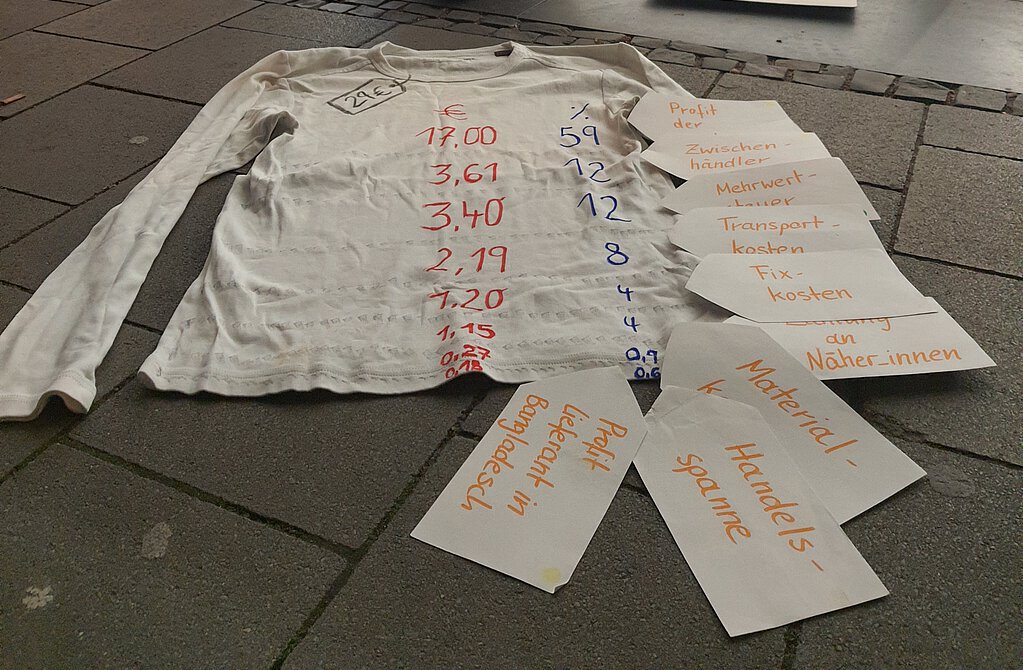 29 €
€ %
17,00 59
3,61 12
3,40 12
2,19 8
1,20 4
1,15 4
0,27 0,9
0,18 0,6
Profit
der
Zwischen-
händler
Mehrwert-
steuer
Transport-
kosten
Fix-
kosten
an
Näher_innen
Material-
k
Handels-
spanne
Profit
Lieferant in
Bangladesch